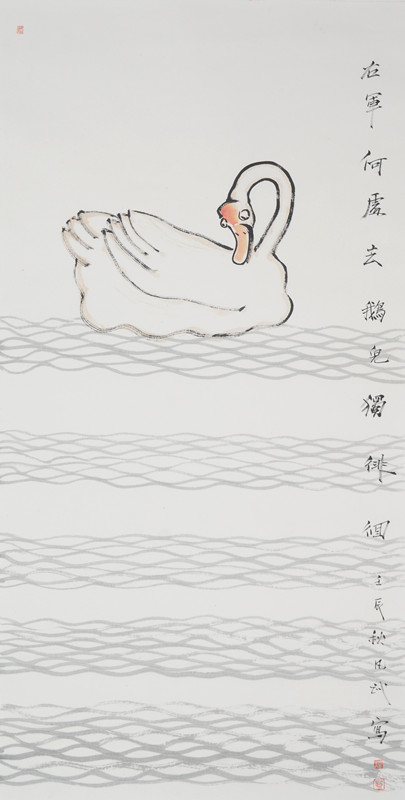 右軍何處去鵝兒獨徘徊
壬辰秋月斌寫